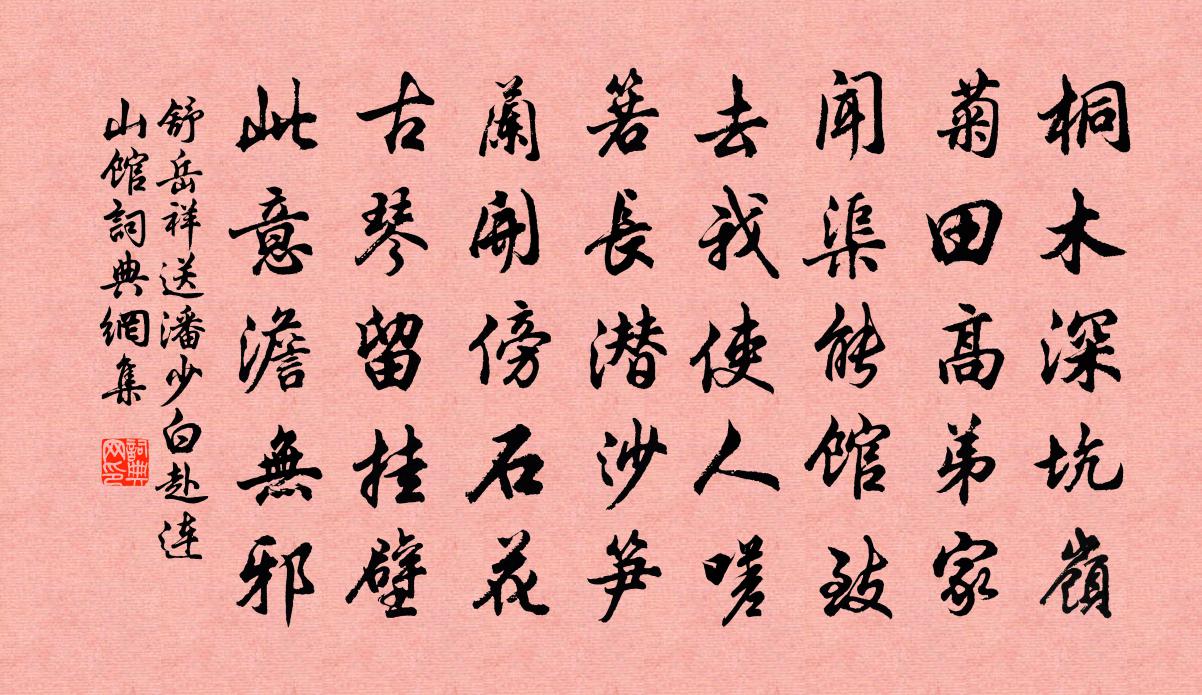 桐木深坑嶺
菊田高弟家
聞渠能館致
去我使人嗟
箬長潜沙笋
蘭開傍石花
古琴留挂壁
此意澹無邪
舒岳祥送潘少白赴连
山館詞典網集
詞典网印